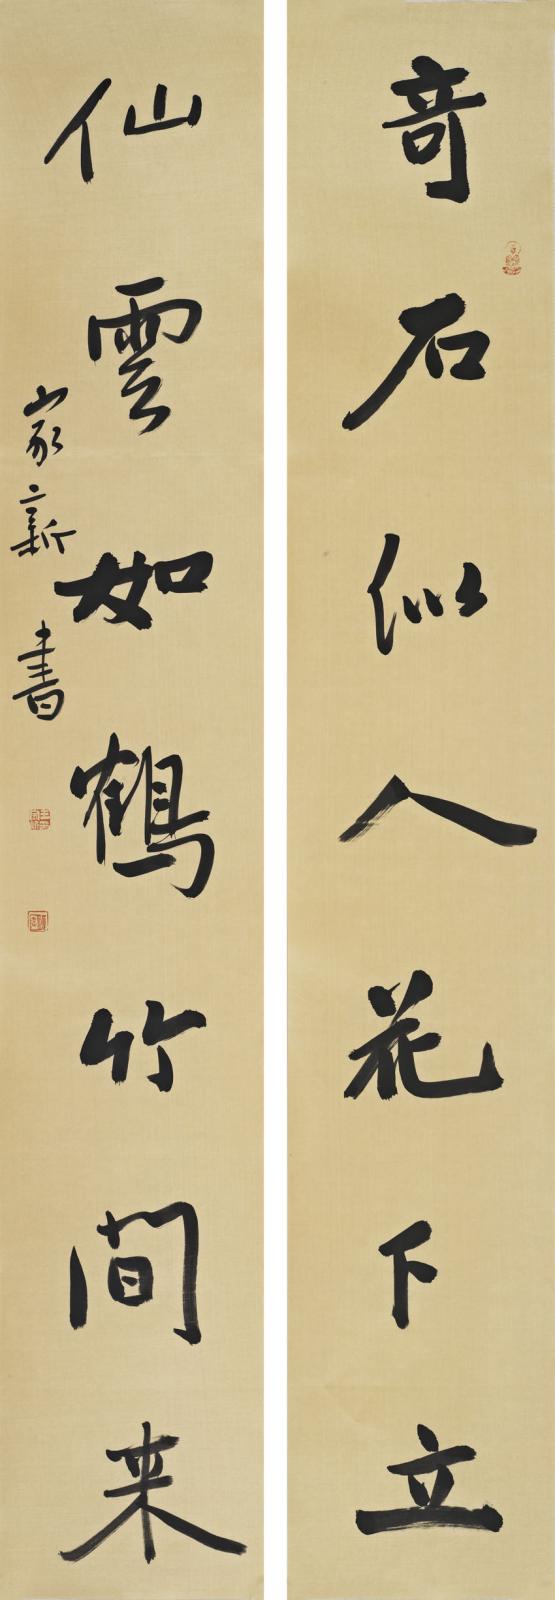 奇石似人花下立
仙雲如鶴竹間来
家新書